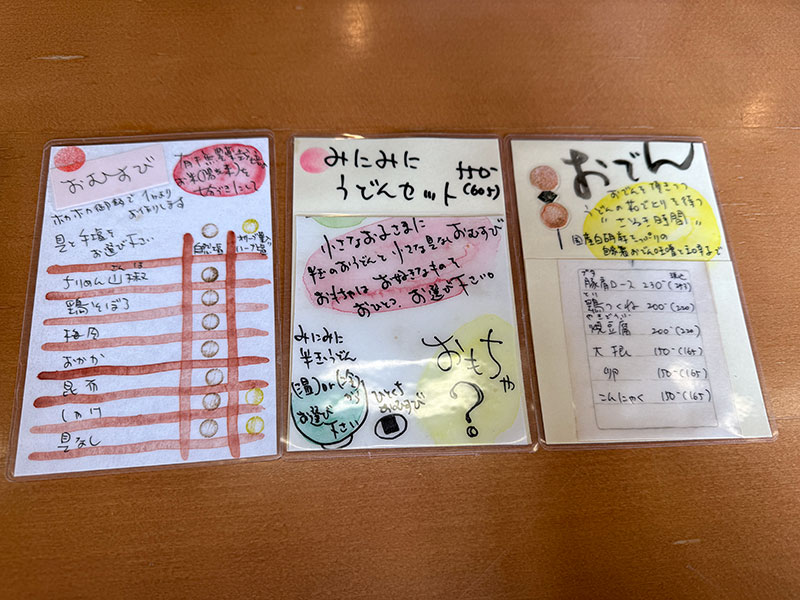 おむすび
お米(
ホカホカ御飯で 1ヶより
おにぎりします
具と手塩を
お選び下さい
自然塩
ハーブ塩
ちりめん山椒
鶏そぼろ
梅肉
おかか
昆布
しゃけ
具なし
みにみに
うどんセット
550-
(605)
小さなお子さまに
半玉のおうどんと小さな具なしおむすび
おもちゃは お好きなもので
おひとつ お選び下さい。
みにみに
半玉うどん
(温) or (冷)
お選び
下さい
ひとくち
おむすび
おもちゃ
?
おでん
おでんを頂きつつ
うどんの茹で上りを待つ
"ごろも時間"
国産白研軒
税込
豚肩ロース 230-(253)
鶏つくね 200-(220)
焼豆腐 200-(220)
大根 150-(165)
卵 150-(165)
こんにゃく 150-(165)